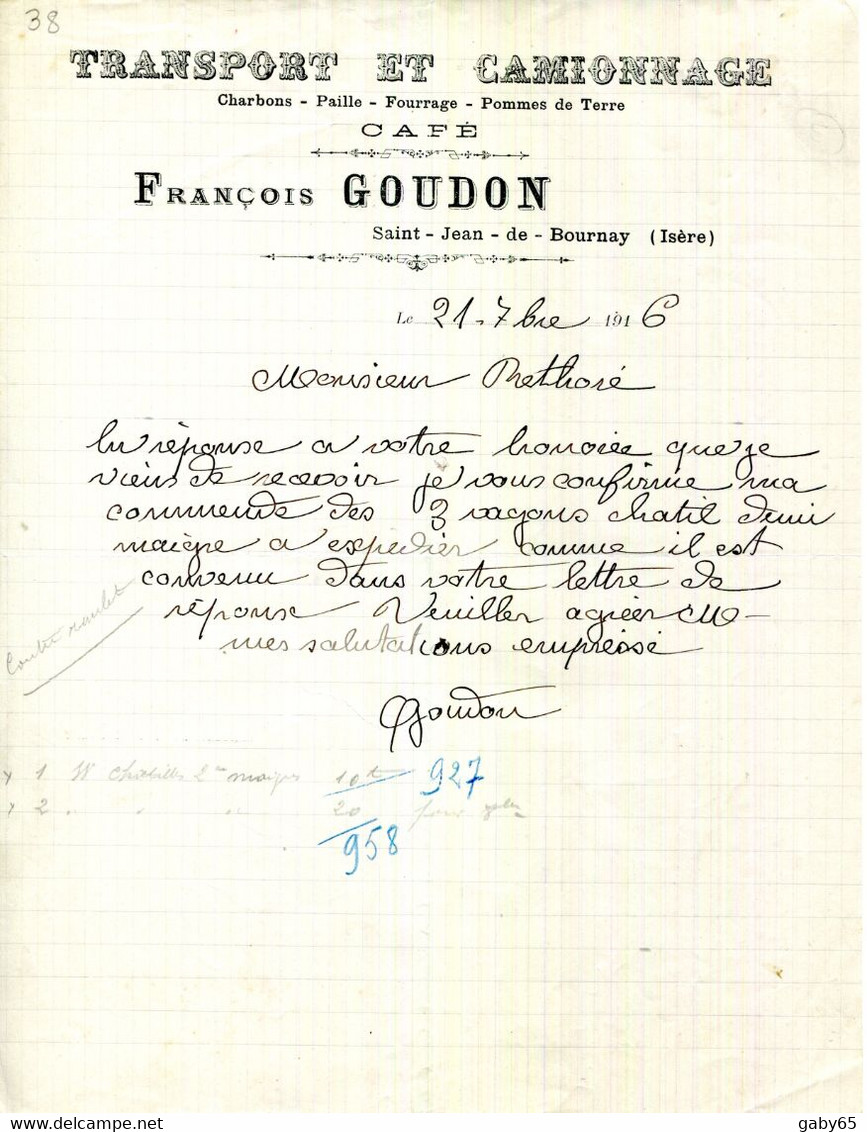 38
TRANSPORT ET CAMIONNAGE
Charbons - Paille - Fourrage - Pommes de Terre
CAFÉ
FRANÇOIS GOUDON
Saint - Jean - de - Bournay (Isère)
Le 21-7bre 1916
Monsieur Rethoré
En réponse a votre honorée que je
viens de recevoir je vous confirme ma
commende des 3 vagons chatil demi
maigre a expedier comme il est
convenu dans votre lettre de
réponse Veuiller agréer M-
mes salutations empréssé
Goudon
1 W 2 maigres 10t 927
2 " " " 20 pour
958
delcampe.net
gaby65